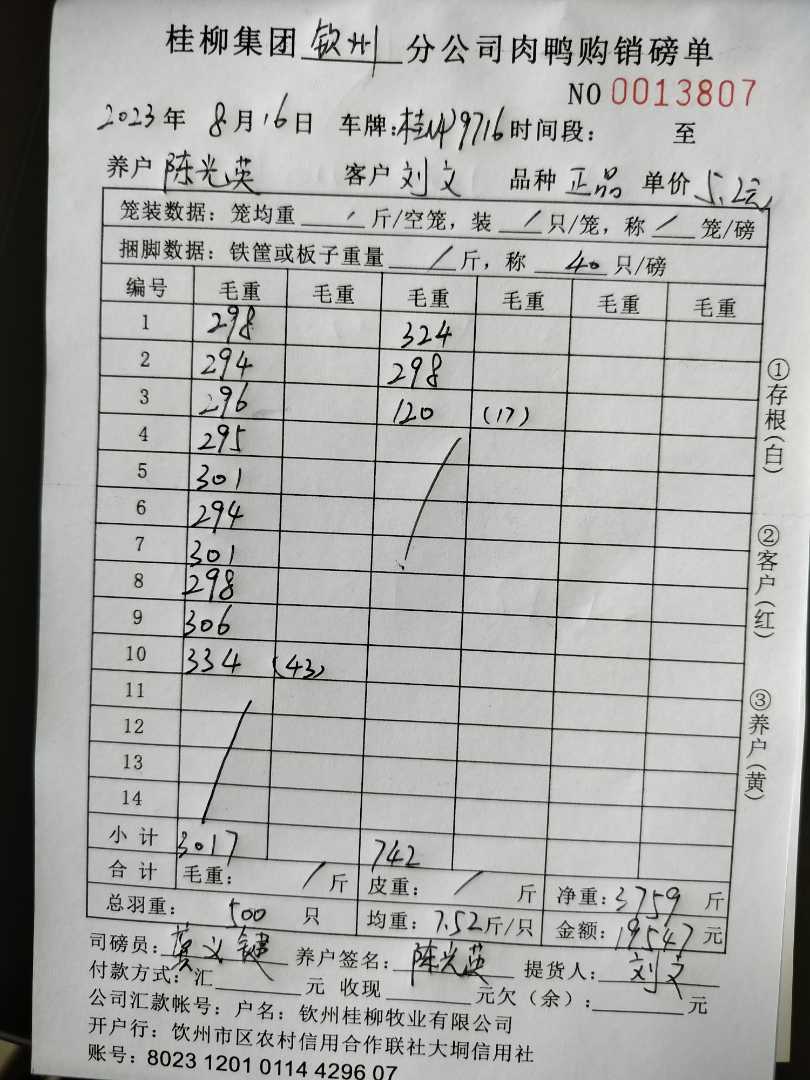 桂柳集团钦州分公司肉鸭购销磅单
NO 0013807
2023年 8月16日 车牌:桂N29716 时间段: 至
养户 陈光英 客户 刘文 品种 正品 单价 5.2元
笼装数据: 笼均重 / 斤/空笼, 装 / 只/笼, 称 / 笼/磅
捆脚数据: 铁筐或板子重量 / 斤, 称 40 只/磅
编号 毛重 毛重 毛重 毛重 毛重 毛重
1 298 324
2 294 298
3 296 120 (17)
4 295
5 301
6 294
7 301
8 298
9 306
10 334 (43)
11
12
13
14
小计 3017 742
合计 毛重: / 斤 皮重: / 斤 净重: 3759 斤
总羽重: 500 只 均重: 7.52斤/只 金额: 19547元
司磅员: 养户签名: 陈光英 提货人: 刘文
付款方式: 汇 元 收现 元欠(余): 元
公司汇款帐号: 户名: 钦州桂柳牧业有限公司
开户行: 钦州市区农村信用合作联社大垌信用社
账号: 8023 1201 0114 4296 07
①存根(白)
②客户(红)
③养户(黄)